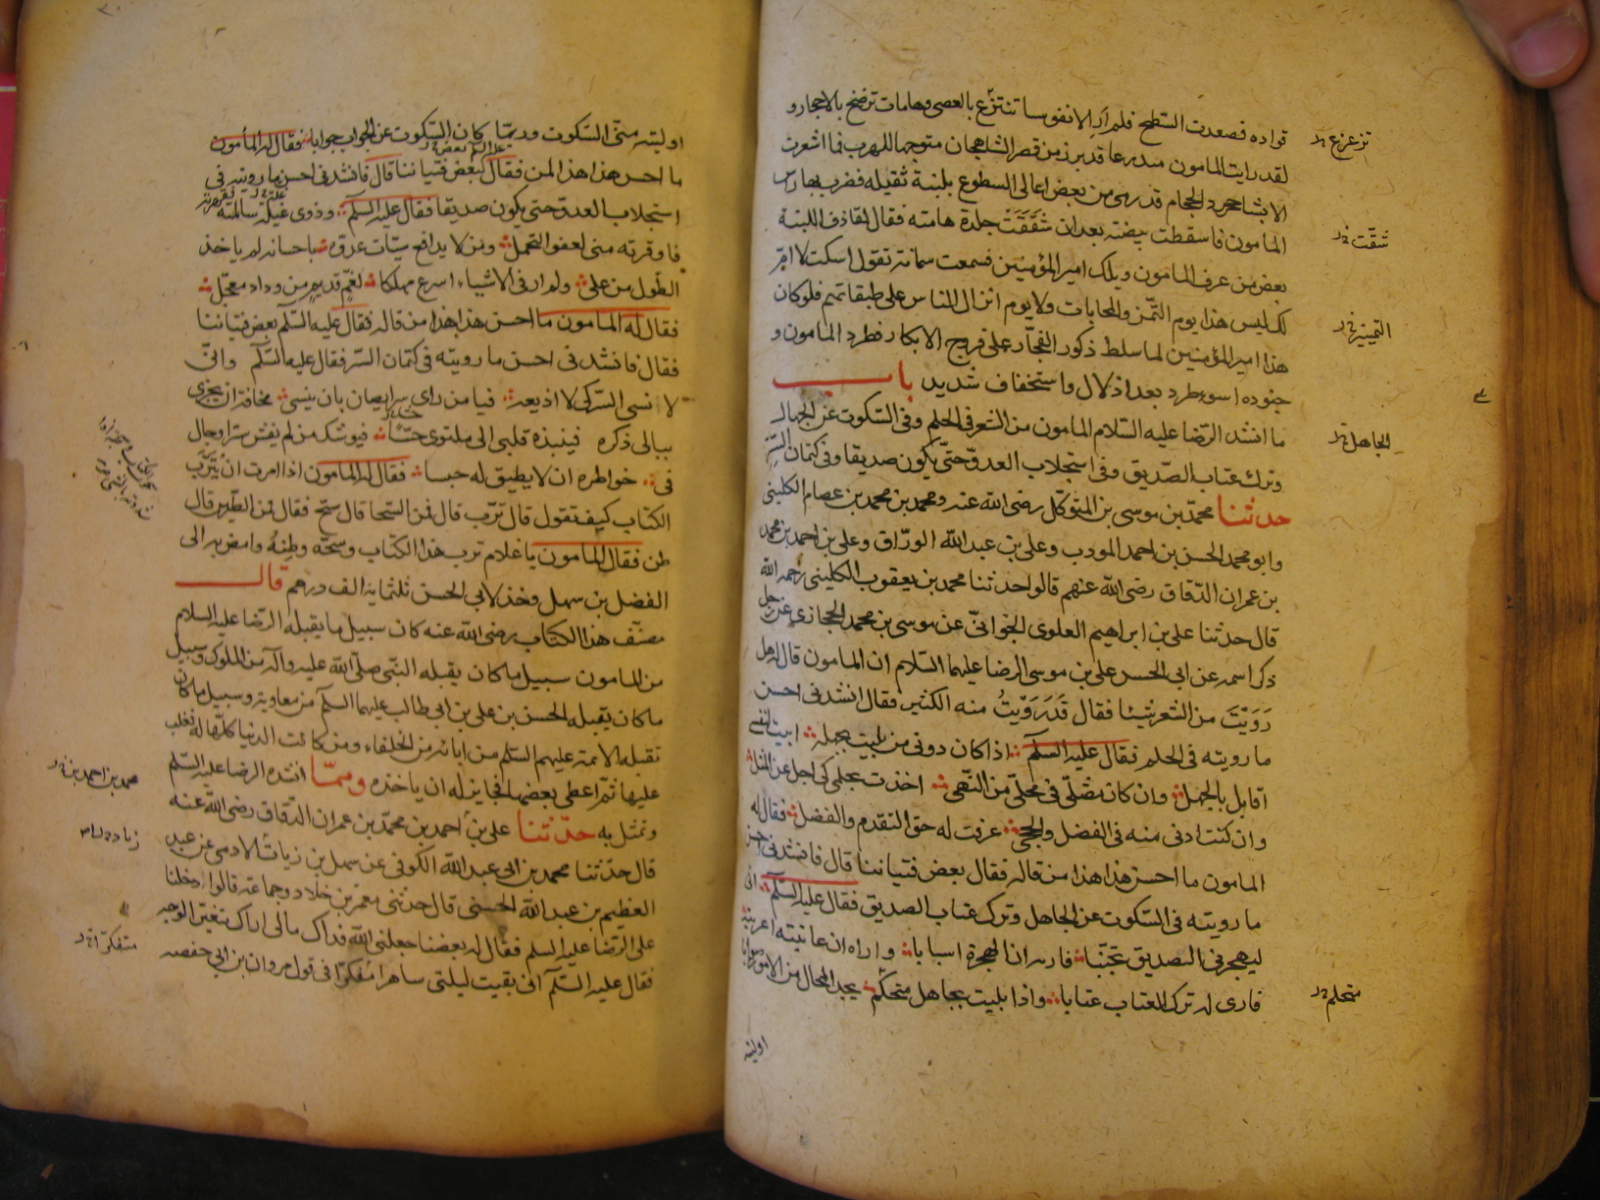 قواده فصعدت السطح فلم أر الا نفوسا تنتزع بالعصى وهامات ترضخ بالاحجار و
لقد رايت المامون متدرعا قد برز من قصر الشاهجان متوجها للهرب فما اشعرت
الا بشاجرد الحجام قد رمى من بعض اعالى السطوع بلبنة ثقيله فضرب بها رأس
المامون فاسقطت بيضته بعد ان شققت جلدة هامته فقال لقاذف اللبنة
بعض من عرف المامون ويلك امير المؤمنين فسمعت سمانة تقول اسكت لا ام
لك ليس هذا يوم التمنز والمحابات ولا يوم انزال الناس على طبقاتهم فلو كان
هذا امير المؤمنين لما سلط ذكور الفجار على فروج الابكار فطرد المامون و
جنوده اسوء طرد بعد اذلال واستخفاف شديد باب
ما انشد الرضا عليه السلام المامون من الشعر فى الحلم وفى السكوت عن الجهال
وترك عتاب الصديق وفى استجلاب العدو حتى يكون صديقا وفى كتمان السر
حدثنا محمد بن موسى بن المتوكل رضى الله عنه ومحمد بن محمد بن عصام الكلينى
وابو محمد الحسن بن احمد المودب وعلى بن عبد الله الوراق وعلى بن احمد بن محمد
بن عمران الدقاق رضى الله عنهم قالوا حدثنا محمد بن يعقوب الكلينى رحمه الله
قال حدثنا على بن ابراهيم العلوى الجوانى عن موسى بن محمد الحجازى عن رجل
ذكر اسمه عن ابى الحسن على بن موسى الرضا عليهما السلام ان المامون قال له هل
رويت من الشعر شيئا فقال قد رويت منه الكثير فقال انشدنى احسن
ما رويته فى الحلم فقال عليه السلم اذا كان دونى من بليت بجهله ابيت لنفسى
اقابل بالجهل وان كان مثلى فى محلى من النهى اخذت بحلمى كى اجل عن المثل
وان كنت ادنى منه فى الفضل والحجى عرفت له حق التقدم والفضل فقال له
المامون ما احسن هذا هذا من قاله فقال بعض فتياننا قال فانشدنى احسن
ما رويته فى السكوت عن الجاهل وترك عتاب الصديق فقال عليه السلم انى
ليهجرنى الصديق تجنبا فاريه ان لهجره اسبابا واراه ان عاتبته اغريته
فارى له ترك العتاب عتابا واذا بليت بجاهل متحكم يجد المحال من الامور صوابا
اوليته
تزعزع
شقت
التميز
الجاهل
متحلم
اوليته منى السكوت وربما كان السكوت عن الجواب جوابا فقال له المأمون
ما احسن هذا هذا لمن فقال لبعض فتياننا قال فانشدنى احسن ما رويته فى
استجلاب العدو حتى يكون صديقا فقال عليه السلم وذوى غيلة سالمته
فاوقرته منى لعفو التجمل ومن لا يدافع سيئات عدوه باحسانه لم ياخذ
الطول من على ولم ار فى الاشياء اسرع مهلكا لغمر قديم من وداد معجل
فقال له المامون ما احسن هذا هذا من قاله فقال عليه السلم بعض فتياننا
فقال فانشدنى احسن ما رويته فى كتمان السر فقال عليه السلم وانى
لانسى السر كى لا اذيعه فيا من راى سرا يصان بان ينسى مخافة ان يجرى
ببالى ذكره فينبذه قلبى الى ملتوى حسا فيوشك من لم يفش سرا وجال
فى خواطره ان لا يطيق له حبسا فقال له المامون اذا امرت ان تترب
الكتاب كيف تقول قال ترب قال فمن السحا قال سح فقال فمن الطين قال
طن فقال المامون يا غلام ترب هذا الكتاب وسحه وطنه وامض به الى
الفضل بن سهل وخذ لابى الحسن ثلثماية الف درهم قال
مصنف هذا الكتاب رضى الله عنه كان سبيل ما يقبله الرضا عليه السلام
من المامون سبيل ما كان يقبله النبى صلى الله عليه وآله من الملوك وسبيل
ما كان يقبله الحسن بن على بن ابى طالب عليهما السلم من معاوية وسبيل ما كان
تقبله الائمة عليهم السلم من ابائه من الخلفاء ومن كانت الدنيا كلها له فغلب
عليها ثم اعطى بعضها فجايز له ان ياخذه ومما انشده الرضا عليه السلم
وتمثل به حدثنا على بن احمد بن محمد بن عمران الدقاق رضى الله عنه
قال حدثنا محمد بن ابى عبد الله الكوفى عن سهل بن زيات الادمى عن عبد
العظيم بن عبد الله الحسنى قال حدثنى معمر بن خلاد وجماعة قالوا دخلنا
على الرضا عليه السلم فقال له بعضنا جعلنى الله فداك مالى اراك متغير الوجه
فقال عليه السلم انى بقيت ليلتى ساهرا مفكرا فى قول مروان بن ابى حفصه
محمد بن احمد بن
زياد
متفكرا